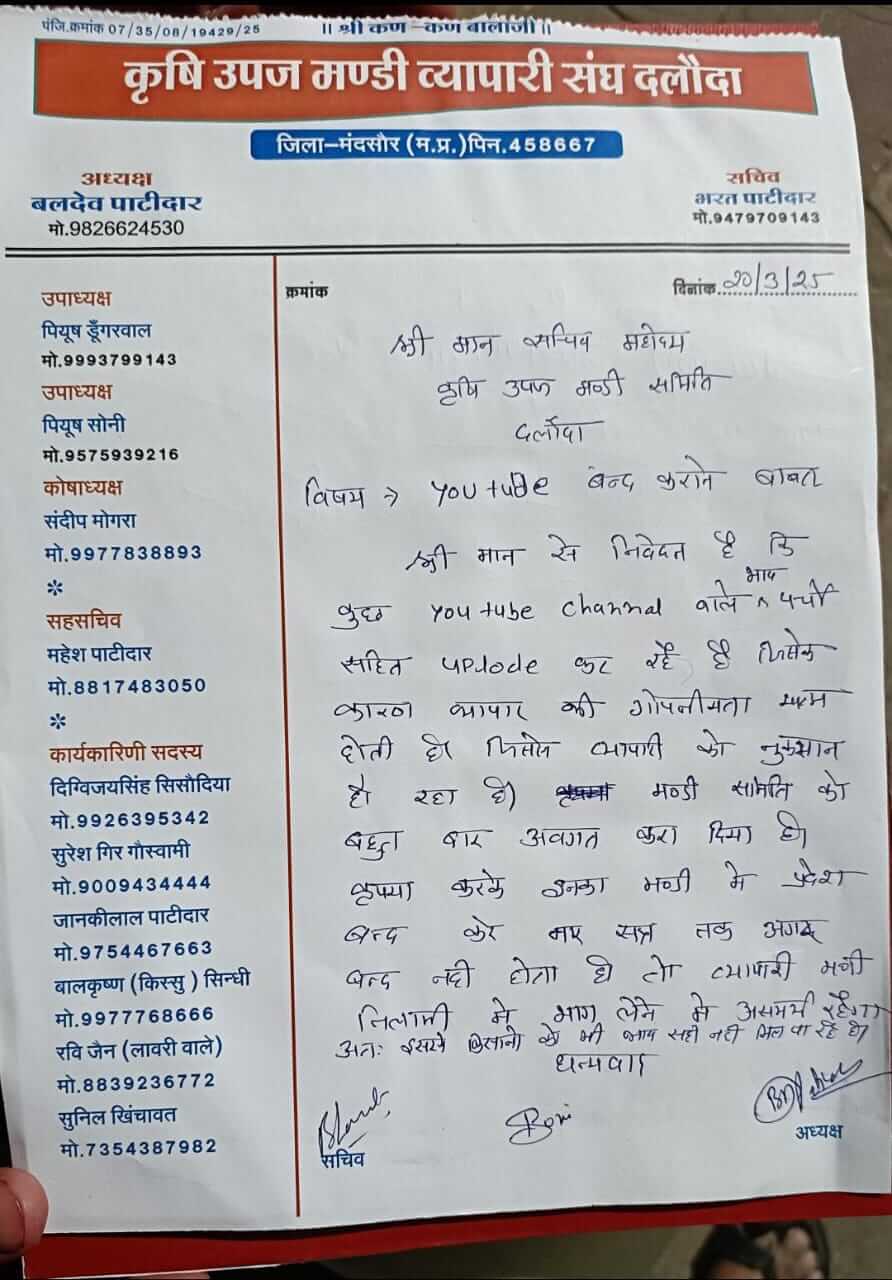 पंजि.कमांक 07/35/08/19429/25
॥ श्री कण –कण बालाजी॥
कृषि उपज मण्डी व्यापारी संघ दलौदा
जिला–मंदसौर (म.प्र.)पिन.458667
अध्यक्ष
बलदेव पाटीदार
मो.9826624530
सचिव
भरत पाटीदार
मो.9479709143
उपाध्यक्ष
पियूष डूँगरवाल
मो.9993799143
उपाध्यक्ष
पियूष सोनी
मो.9575939216
कोषाध्यक्ष
संदीप मोगरा
मो.9977838893
सहसचिव
महेश पाटीदार
मो.8817483050
कार्यकारिणी सदस्य
दिग्विजयसिंह सिसौदिया
मो.9926395342
सुरेश गिर गौस्वामी
मो.9009434444
जानकीलाल पाटीदार
मो.9754467663
बालकृष्ण (किस्सु ) सिन्धी
मो.9977768666
रवि जैन (लावरी वाले)
मो.8839236772
सुनिल खिंचावत
मो.7354387982
क्रमांक
दिनांक. 20/3/25
श्री मान सचिव महोदय
कृषि उपज मण्डी समिति
दलौदा
विषय → YOU tube बन्द कराने बाबत
श्री मान से निवेदन है कि
कुछ YOU tube channal वाले भाव पर्ची
सहित uplode कर रहे है जिसके
कारण व्यापार की गोपनीयता खत्म
होती है। जिससे व्यापारी को नुकसान
हो रहा है। मण्डी समिति को
बहुत बार अवगत करा दिया है।
कृपया करके इनका मण्डी मे प्रवेश
बन्द करे नए सत्र तक अगर
बन्द नही होता है तो व्यापारी मण्डी
निलामी मे भाग लेने मे असमर्थ रहेगा
अतः इससे किसानो को भी भाव सही नही मिल पा रहे है।
धन्यवाद
सचिव
अध्यक्ष